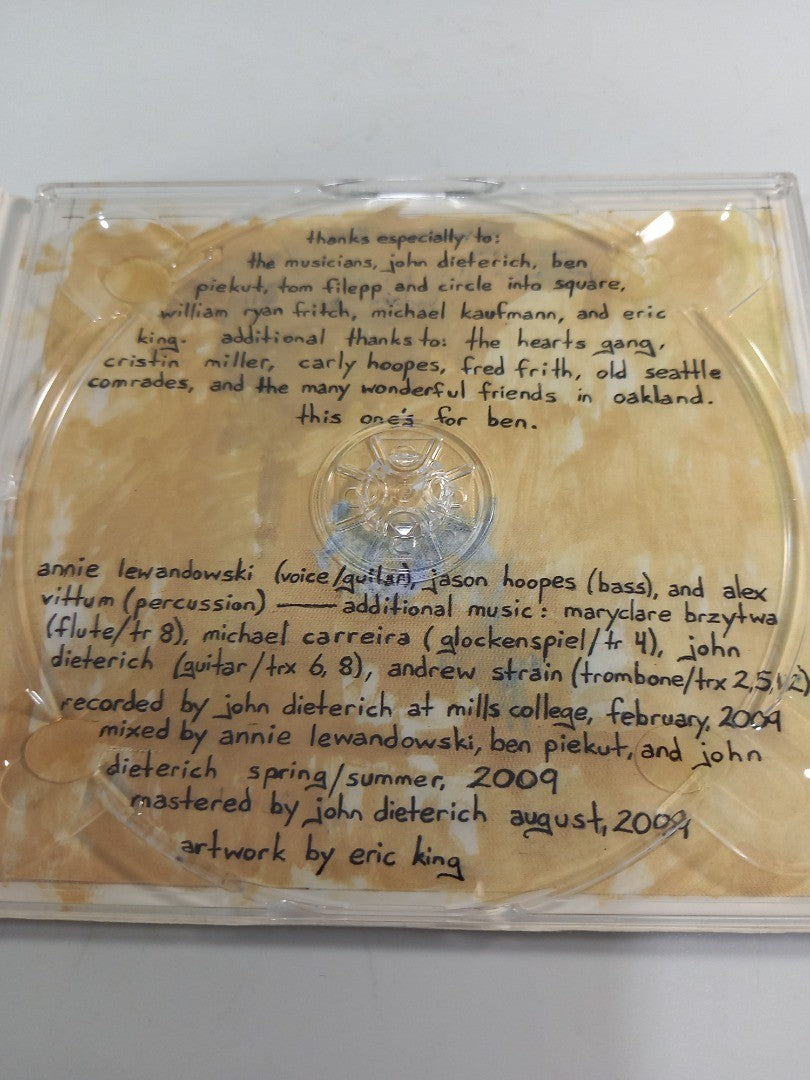 thanks especially to:
the musicians, john dieterich, ben
piekut, tom filepp and circle into square,
william ryan fritch, michael kaufmann, and eric
king. additional thanks to: the hearts gang,
cristin miller, carly hoopes, fred frith, old seattle
comrades, and the many wonderful friends in oakland.
this one's for ben.
annie lewandowski (voice/guitar), jason hoopes (bass), and alex
vittum (percussion) — additional music: maryclare brzytwa
(flute/tr 8), michael carreira (glockenspiel/tr 4), john
dieterich (guitar/trx 6, 8), andrew strain (trombone/trx 2,5,12)
recorded by john dieterich at mills college, february, 2009
mixed by annie lewandowski, ben piekut, and john
dieterich spring/summer, 2009
mastered by john dieterich august, 2009
artwork by eric king